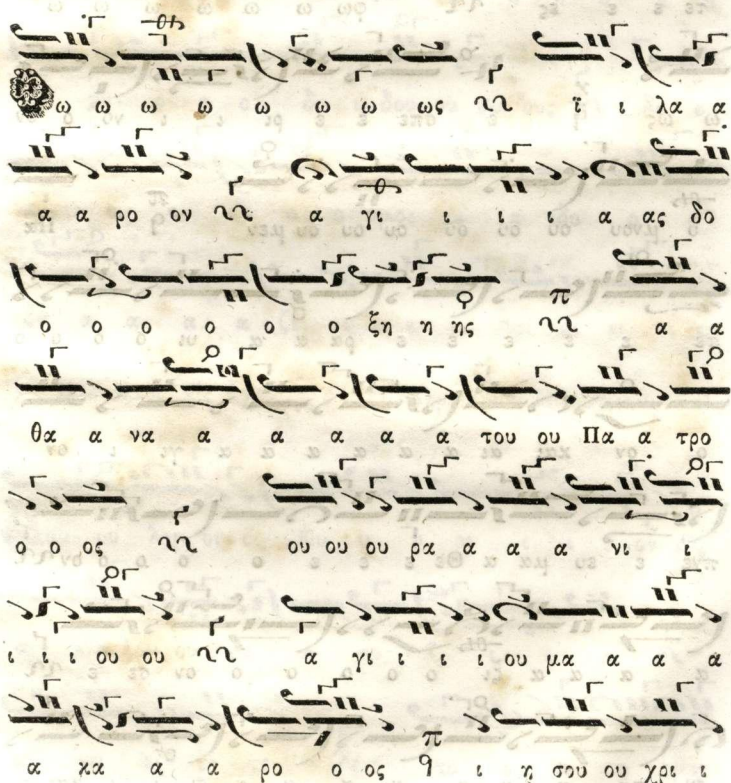 ω ω ω ω ω ω ω ως ϊ ι λα α
α α ρο ον α γι ι ι ι α ας δο
ο ο ο ο ο ο ξη η ης π α α
θα α να α α α α α του ου Πα α τρο
ο ο ος ου ου ου ρα α α α νι ι
ι ι ι ου ου α γι ι ι ι ου μα α α α
α κα α α ρο ο ος π q ι η σου ου χρι ι